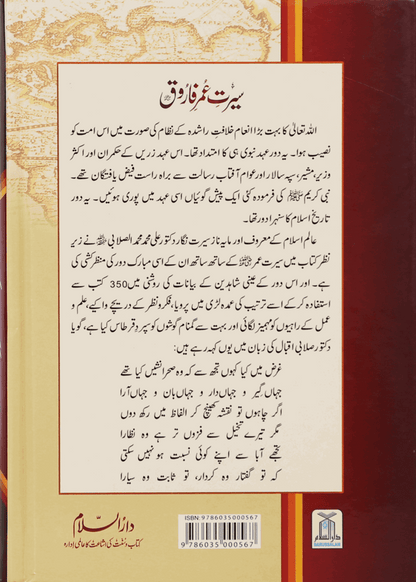 سیرتِ عمر فاروق ؓ
اللہ تعالیٰ کا بہت بڑا انعام خلافتِ راشدہ کے نظام کی صورت میں اس امت کو
نصیب ہوا۔ یہ دور عہدِ نبوی ہی کا امتداد تھا۔ اس عہدِ زریں کے حکمران اور اکثر
وزیر، مشیر، سپہ سالار اور عوام آفتابِ رسالت سے براہ راست فیض یافتگان تھے۔
نبی کریم ﷺ کی فرمودہ کئی ایک پیش گوئیاں اسی عہد میں پوری ہوئیں۔ یہ دور
تاریخ اسلام کا سنہرا دور تھا۔
عالم اسلام کے معروف اور مایہ ناز سیرت نگار دکتور علی محمد محمد الصلابی ﷾ نے زیرِ
نظر کتاب میں سیرت عمر ؓ کے ساتھ ساتھ ان کے اسی مبارک دور کی منظر کشی کی
ہے۔ اور اس دور کے عینی شاہدین کے بیانات کی روشنی میں 350 کتب سے
استفادہ کر کے اسے ترتیب کی عمدہ لڑی میں پرو دیا، فکر و نظر کے دریچے وا کیے، علم و
عمل کے راہیوں کو مہمیز لگائی اور بہت سے گمنام گوشوں کو سپردِ قرطاس کیا ہے، گویا
دکتور صلابی اقبال کی زبان میں یوں کہہ رہے ہیں:
غرض میں کیا کہوں تجھ سے کہ وہ صحرا نشیں کیا تھے
جہاں گیر و جہاں دار و جہاں بان و جہاں آرا
اگر چاہوں تو نقشہ کھینچ کر الفاظ میں رکھ دوں
مگر تیرے تخیل سے فزوں تر ہے وہ نظارا
تجھے آبا سے اپنے کوئی نسبت ہو نہیں سکتی
کہ تو گفتار وہ کردار، تو ثابت وہ سیارا
ISBN: 9786035000567
9 786035 000567
دارالسلام
کتاب و سنت کی اشاعت کا عالمی ادارہ
دارالسلام